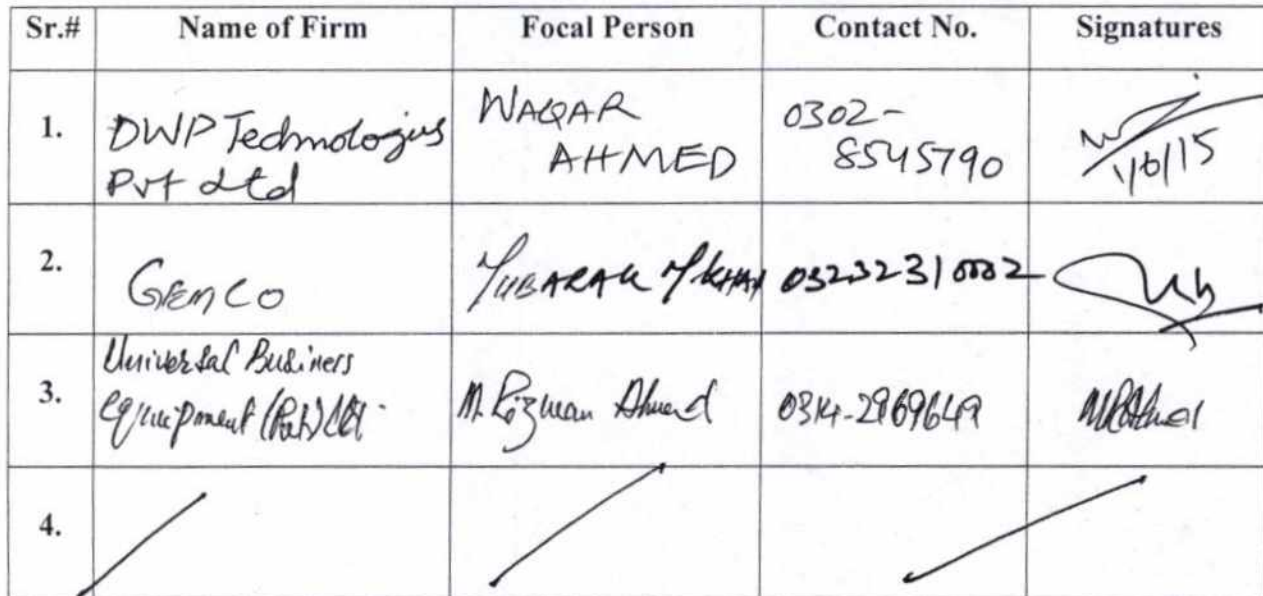 Sr.# Name of Firm Focal Person Contact No. Signatures
1. DWP Technologies WAQAR 0302-
Pvt Ltd AHMED 8545790 1/6/15
2. GEMCO MUBARAK M KHAN 03232310002
Universal Business
3. Equipment (Pvt) Ltd. M. Rizwan Ahmed 0314-2969649
4.